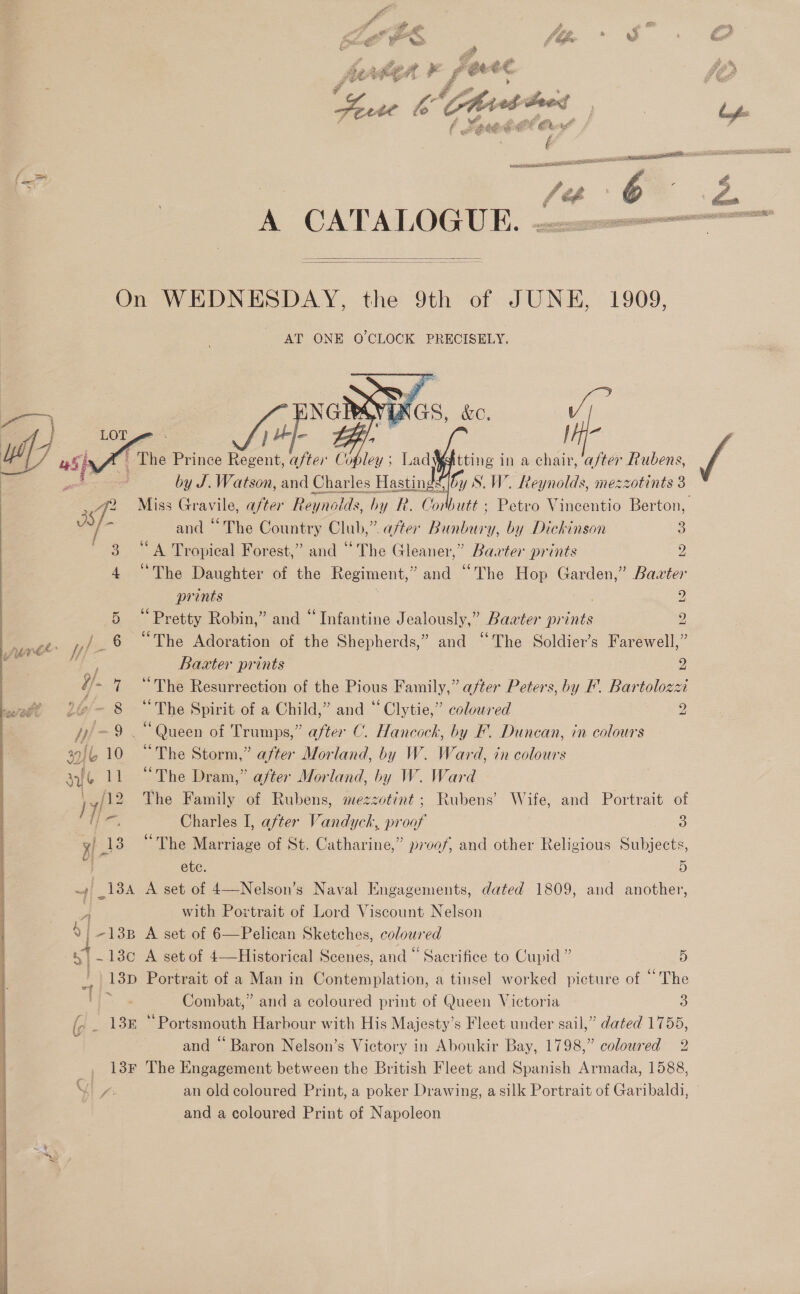 A CATALOGUE.
On WEDNESDAY, the 9th of JUNE, 1909,
AT ONE O'CLOCK PRECISELY.
ENGRAVINGS, &c.
LOT
1 The Prince Regent, after Copley; Lady sitting in a chair, after Rubens,
by J. Watson, and Charles Hastings, by S. W. Reynolds, mezzotints 3
2 Miss Gravile, after Reynolds, by R. Corbutt; Petro Vincentio Berton,
and “The Country Club,” after Bunbury, by Dickinson 3
3 “A Tropical Forest,” and “The Gleaner,” Baxter prints 2
4 “The Daughter of the Regiment,” and “The Hop Garden,” Baxter
prints 2
5 “Pretty Robin,” and “Infantine Jealously,” Baxter prints 2
6 “The Adoration of the Shepherds,” and “The Soldier's Farewell,”
Baxter prints 2
7 “The Resurrection of the Pious Family,” after Peters, by F. Bartolozzi
8 “The Spirit of a Child,” and “Clytie,” coloured 2
9 “Queen of Trumps,” after C. Hancock, by F. Duncan, in colours
10 “The Storm,” after Morland, by W. Ward, in colours
11 “The Dram,” after Morland, by W. Ward
12 The Family of Rubens, mezzotint; Rubens' Wife, and Portrait of
Charles I, after Vandyck, proof 3
13 “The Marriage of St. Catharine,” proof, and other Religious Subjects,
etc. 5
13A A set of 4—Nelson's Naval Engagements, dated 1809, and another,
with Portrait of Lord Viscount Nelson
13B A set of 6—Pelican Sketches, coloured
13C A set of 4—Historical Scenes, and “Sacrifice to Cupid” 5
13D Portrait of a Man in Contemplation, a tinsel worked picture of “The
Combat,” and a coloured print of Queen Victoria 3
13E “Portsmouth Harbour with His Majesty's Fleet under sail,” dated 1755,
and “Baron Nelson's Victory in Aboukir Bay, 1798,” coloured 2
13F The Engagement between the British Fleet and Spanish Armada, 1588,
an old coloured Print, a poker Drawing, a silk Portrait of Garibaldi,
and a coloured Print of Napoleon